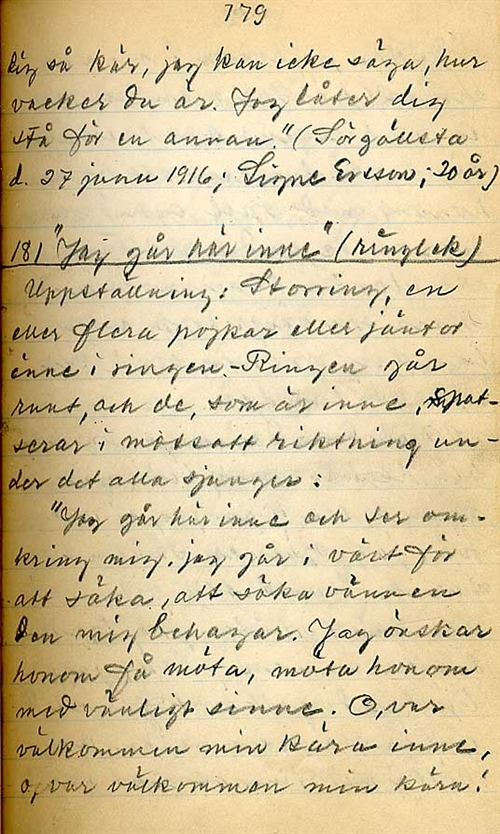 179
dig så kär, jag kan icke säga, hur
vacker du är. Jag låter dig
stå för en annan." (Sörgällsta
d. 27 juni 1916; Signe Ersson; 20 år)
181 "Jag går här inne" (ringlek)
Uppställning: Storring, en
eller flera pojkar eller jäntor
inne i ringen. - Ringen går
runt, och de, som är inne, spat-
serar i motsatt riktning un-
der det alla sjunger:
"Jag går här inne och ser om-
kring mig. jag går i vårt för
att söka, att söka vännen
den mig behagar. Jag önskar
honom få möta, möta honom
med vänligt sinne. O, var
välkommen min kära inne,
o, var välkommen min kära!